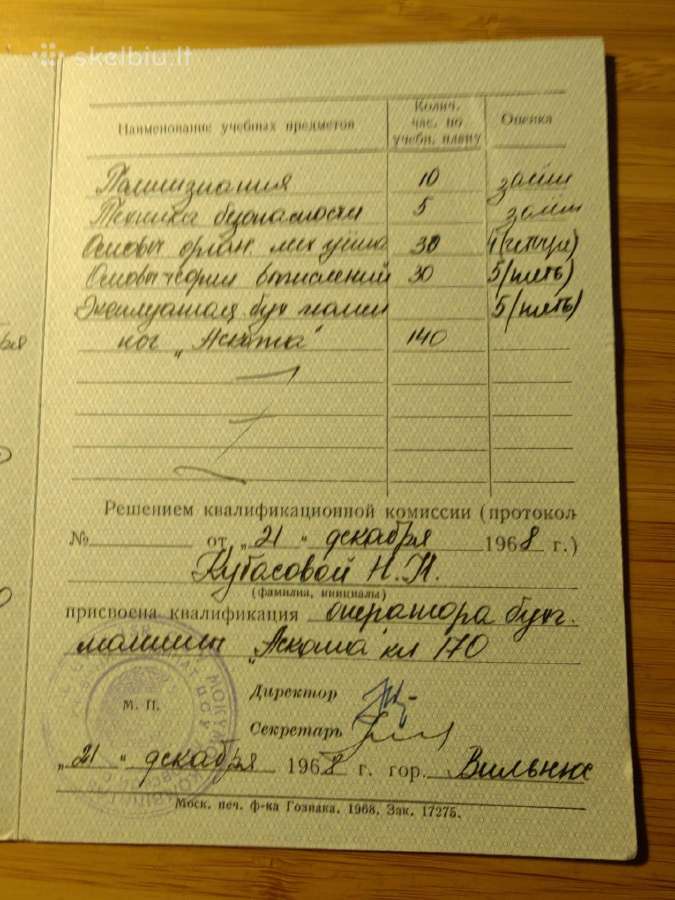 skelbiu.lt
Наименование учебных предметов
Колич. час. по учебн. плану
Оценка
Машинознания 10 зачёт
Техника безопасности 5 зачёт
Основы орган. мех учёта 30 4 (четыре)
Основы теории вычислений 30 5 (пять)
Эксплуатация бух машин 5 (пять)
ног „Аскота" 140
Решением квалификационной комиссии (протокол
№ от „21 " декабря 1968 г.)
Кубасовой Н. И.
(фамилия, инициалы)
присвоена квалификация оператора бухг.
машины „Аскота" кл 170
М. П.
Директор
Секретарь
„21 " декабря 1968 г. гор. Вильнюс
Моск. печ. ф-ка Гознака. 1968. Зак. 17275.